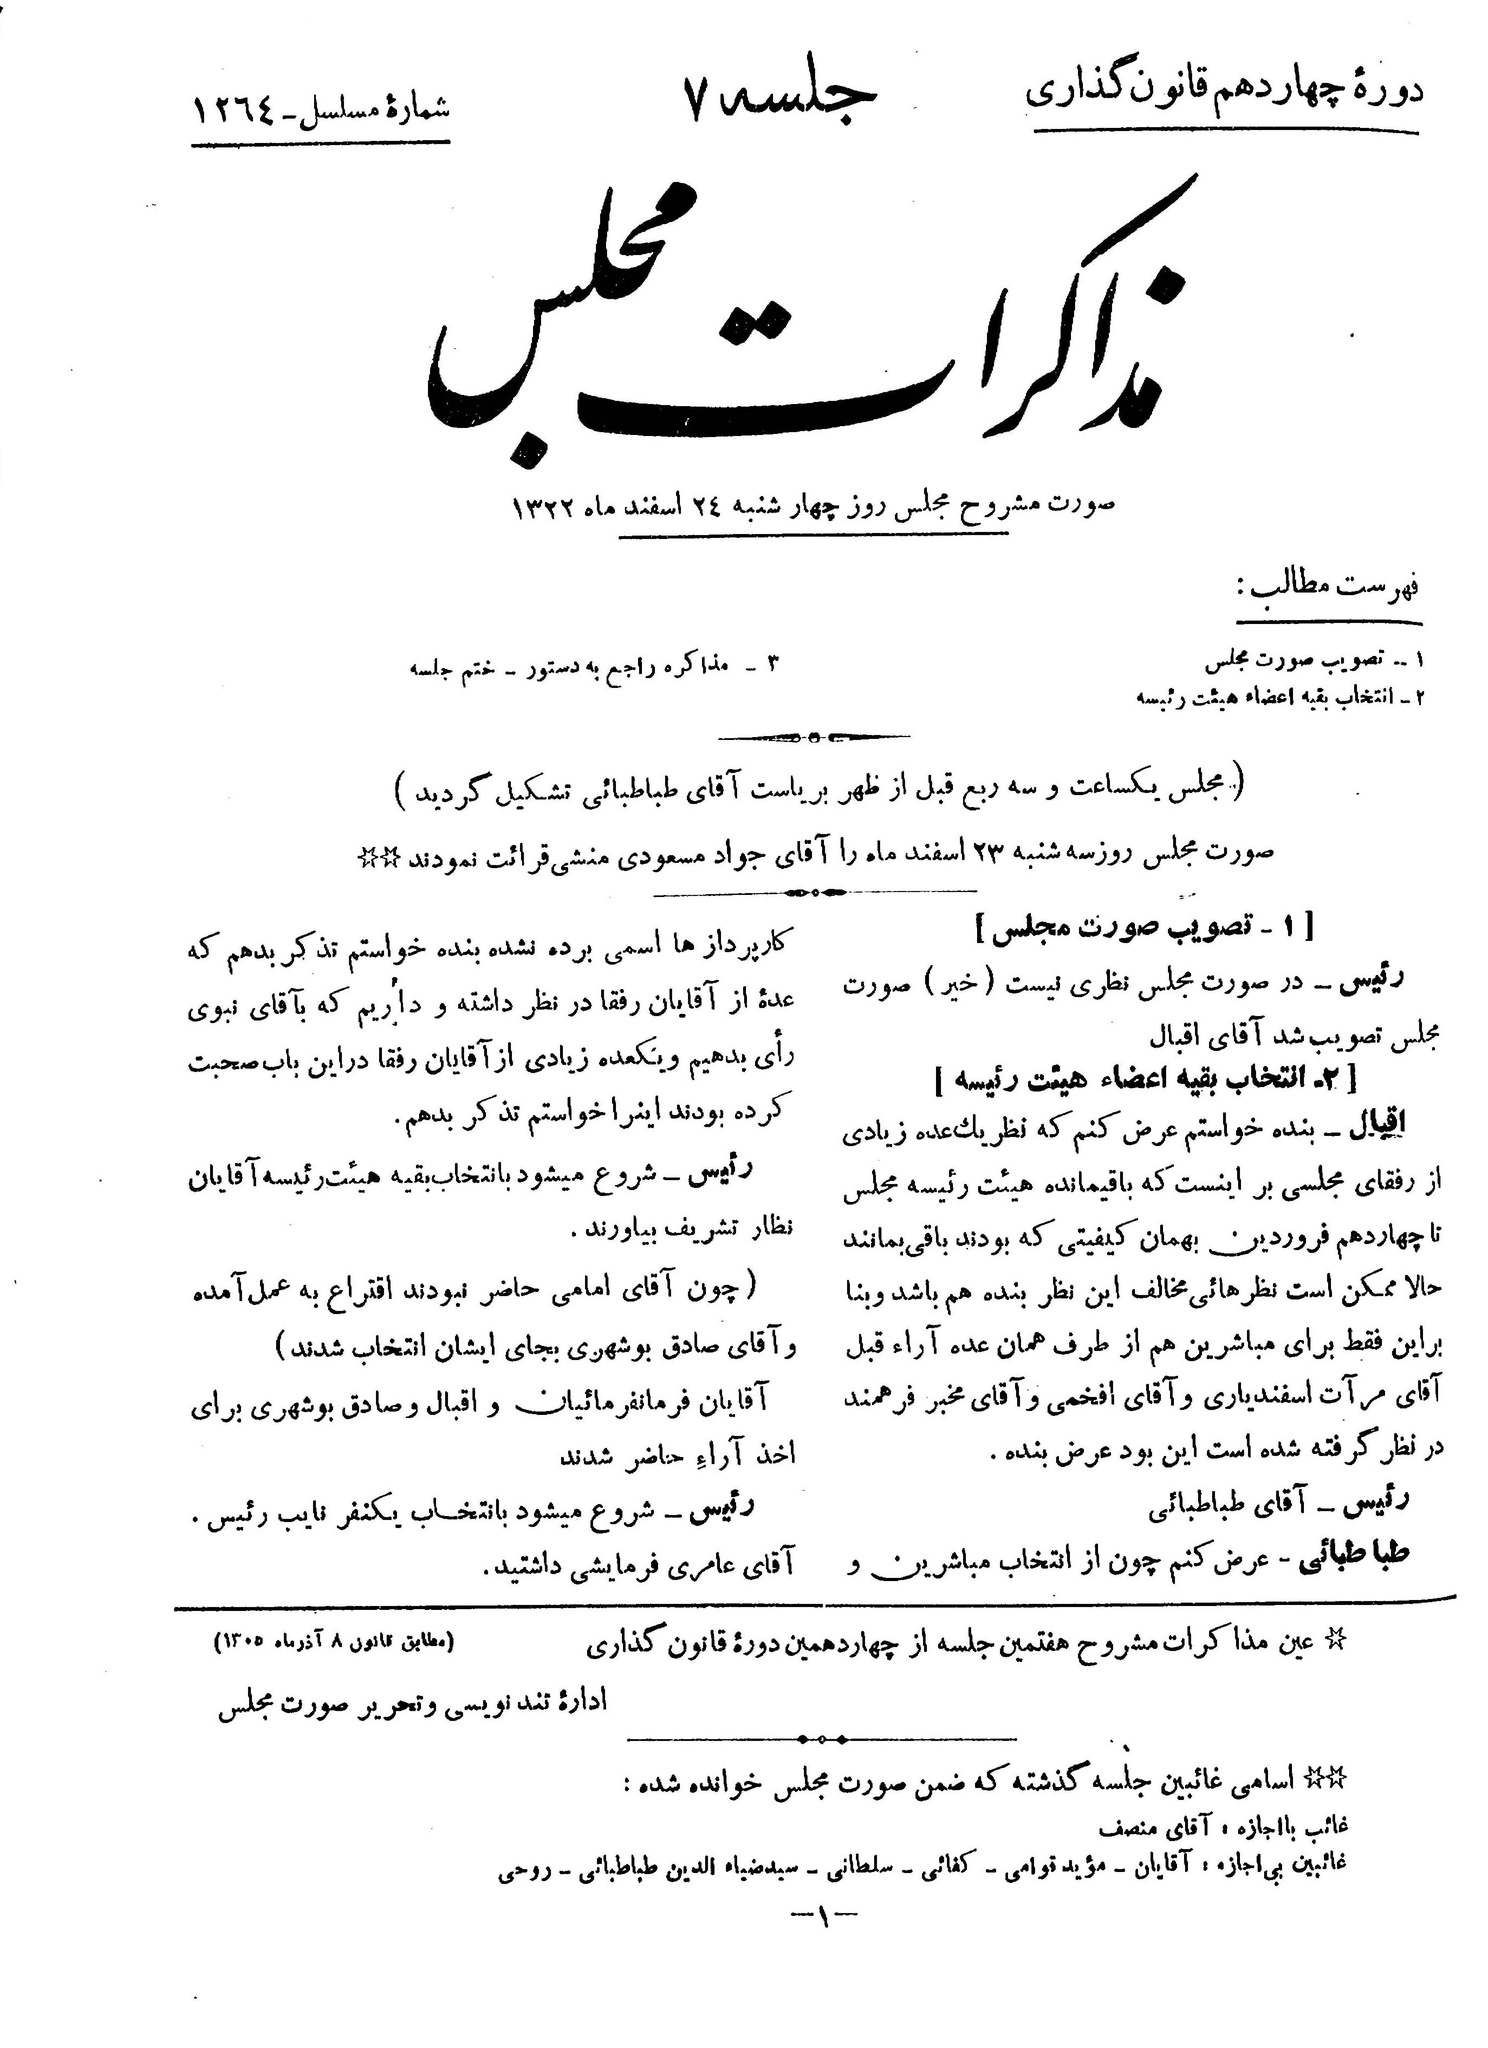 دورهٔ چهاردهم قانون گذاری
جلسه ۷
شمارهٔ مسلسل ـ ۱۲٦٤
مذاکرات مجلس
صورت مشروح مجلس روز چهار شنبه ۲٤ اسفند ماه ۱۳۲۲
فهرست مطالب :
۱ ـ تصویب صورت مجلس
۲ ـ انتخاب بقیه اعضاء هیئت رئیسه
۳ ـ مذاکره راجع به دستور ـ ختم جلسه
(مجلس یکساعت و سه ربع قبل از ظهر بریاست آقای طباطبائی تشکیل گردید)
صورت مجلس روز سه شنبه ۲۳ اسفند ماه را آقای جواد مسعودی منشی قرائت نمودند ☆☆
[ ۱ ـ تصویب صورت مجلس ]
رئیس ـ در صورت مجلس نظری نیست (خیر) صورت
مجلس تصویب شد آقای اقبال
[ ۲ـ انتخاب بقیه اعضاء هیئت رئیسه ]
اقبال ـ بنده خواستم عرض کنم که نظر یك عده زیادی
از رفقای مجلسی بر اینست که باقیمانده هیئت رئیسه مجلس
تا چهاردهم فروردین بهمان کیفیتی که بودند باقی بمانند
حالا ممکن است نظر هائی مخالف این نظر بنده هم باشد و بنا
براین فقط برای مباشرین هم از طرف همان عده آراء قبل
آقای مرآت اسفندیاری و آقای افخمی و آقای مخبر فرهمند
در نظر گرفته شده است این بود عرض بنده .
رئیس ـ آقای طباطبائی
طباطبائی ـ عرض کنم چون از انتخاب مباشرین و
کارپرداز ها اسمی برده نشده بنده خواستم تذکر بدهم که
عدهٔ از آقایان رفقا در نظر داشته و داریم که بآقای نبوی
رأی بدهیم و یکعده زیادی از آقایان رفقا در این باب صحبت
کرده بودند اینرا خواستم تذکر بدهم.
رئیس ـ شروع میشود بانتخاب بقیه هیئت رئیسه آقایان
نظار تشریف بیاورند .
(چون آقای امامی حاضر نبودند اقتراع به عمل آمده
و آقای صادق بوشهری بجای ایشان انتخاب شدند)
آقایان فرمانفرمائیان و اقبال و صادق بوشهری برای
اخذ آراء حاضر شدند
رئیس ـ شروع میشود بانتخاب یکنفر نایب رئیس .
آقای عامری فرمایشی داشتید.
☆ عین مذاکرات مشروح هفتمین جلسه از چهاردهمین دورهٔ قانون گذاری
(مطابق قانون ۸ آذرماه ۱۳۰۵)
ادارهٔ تند نویسی و تحریر صورت مجلس
☆☆ اسامی غائبین جلسه گذشته که ضمن صورت مجلس خوانده شده :
غائب با اجازه : آقای منصف
غائبین بی اجازه : آقایان ـ مؤید قوامی ـ کفائی ـ سلطانی ـ سیدضیاء الدین طباطبائی ـ روحی
ـ۱ـ